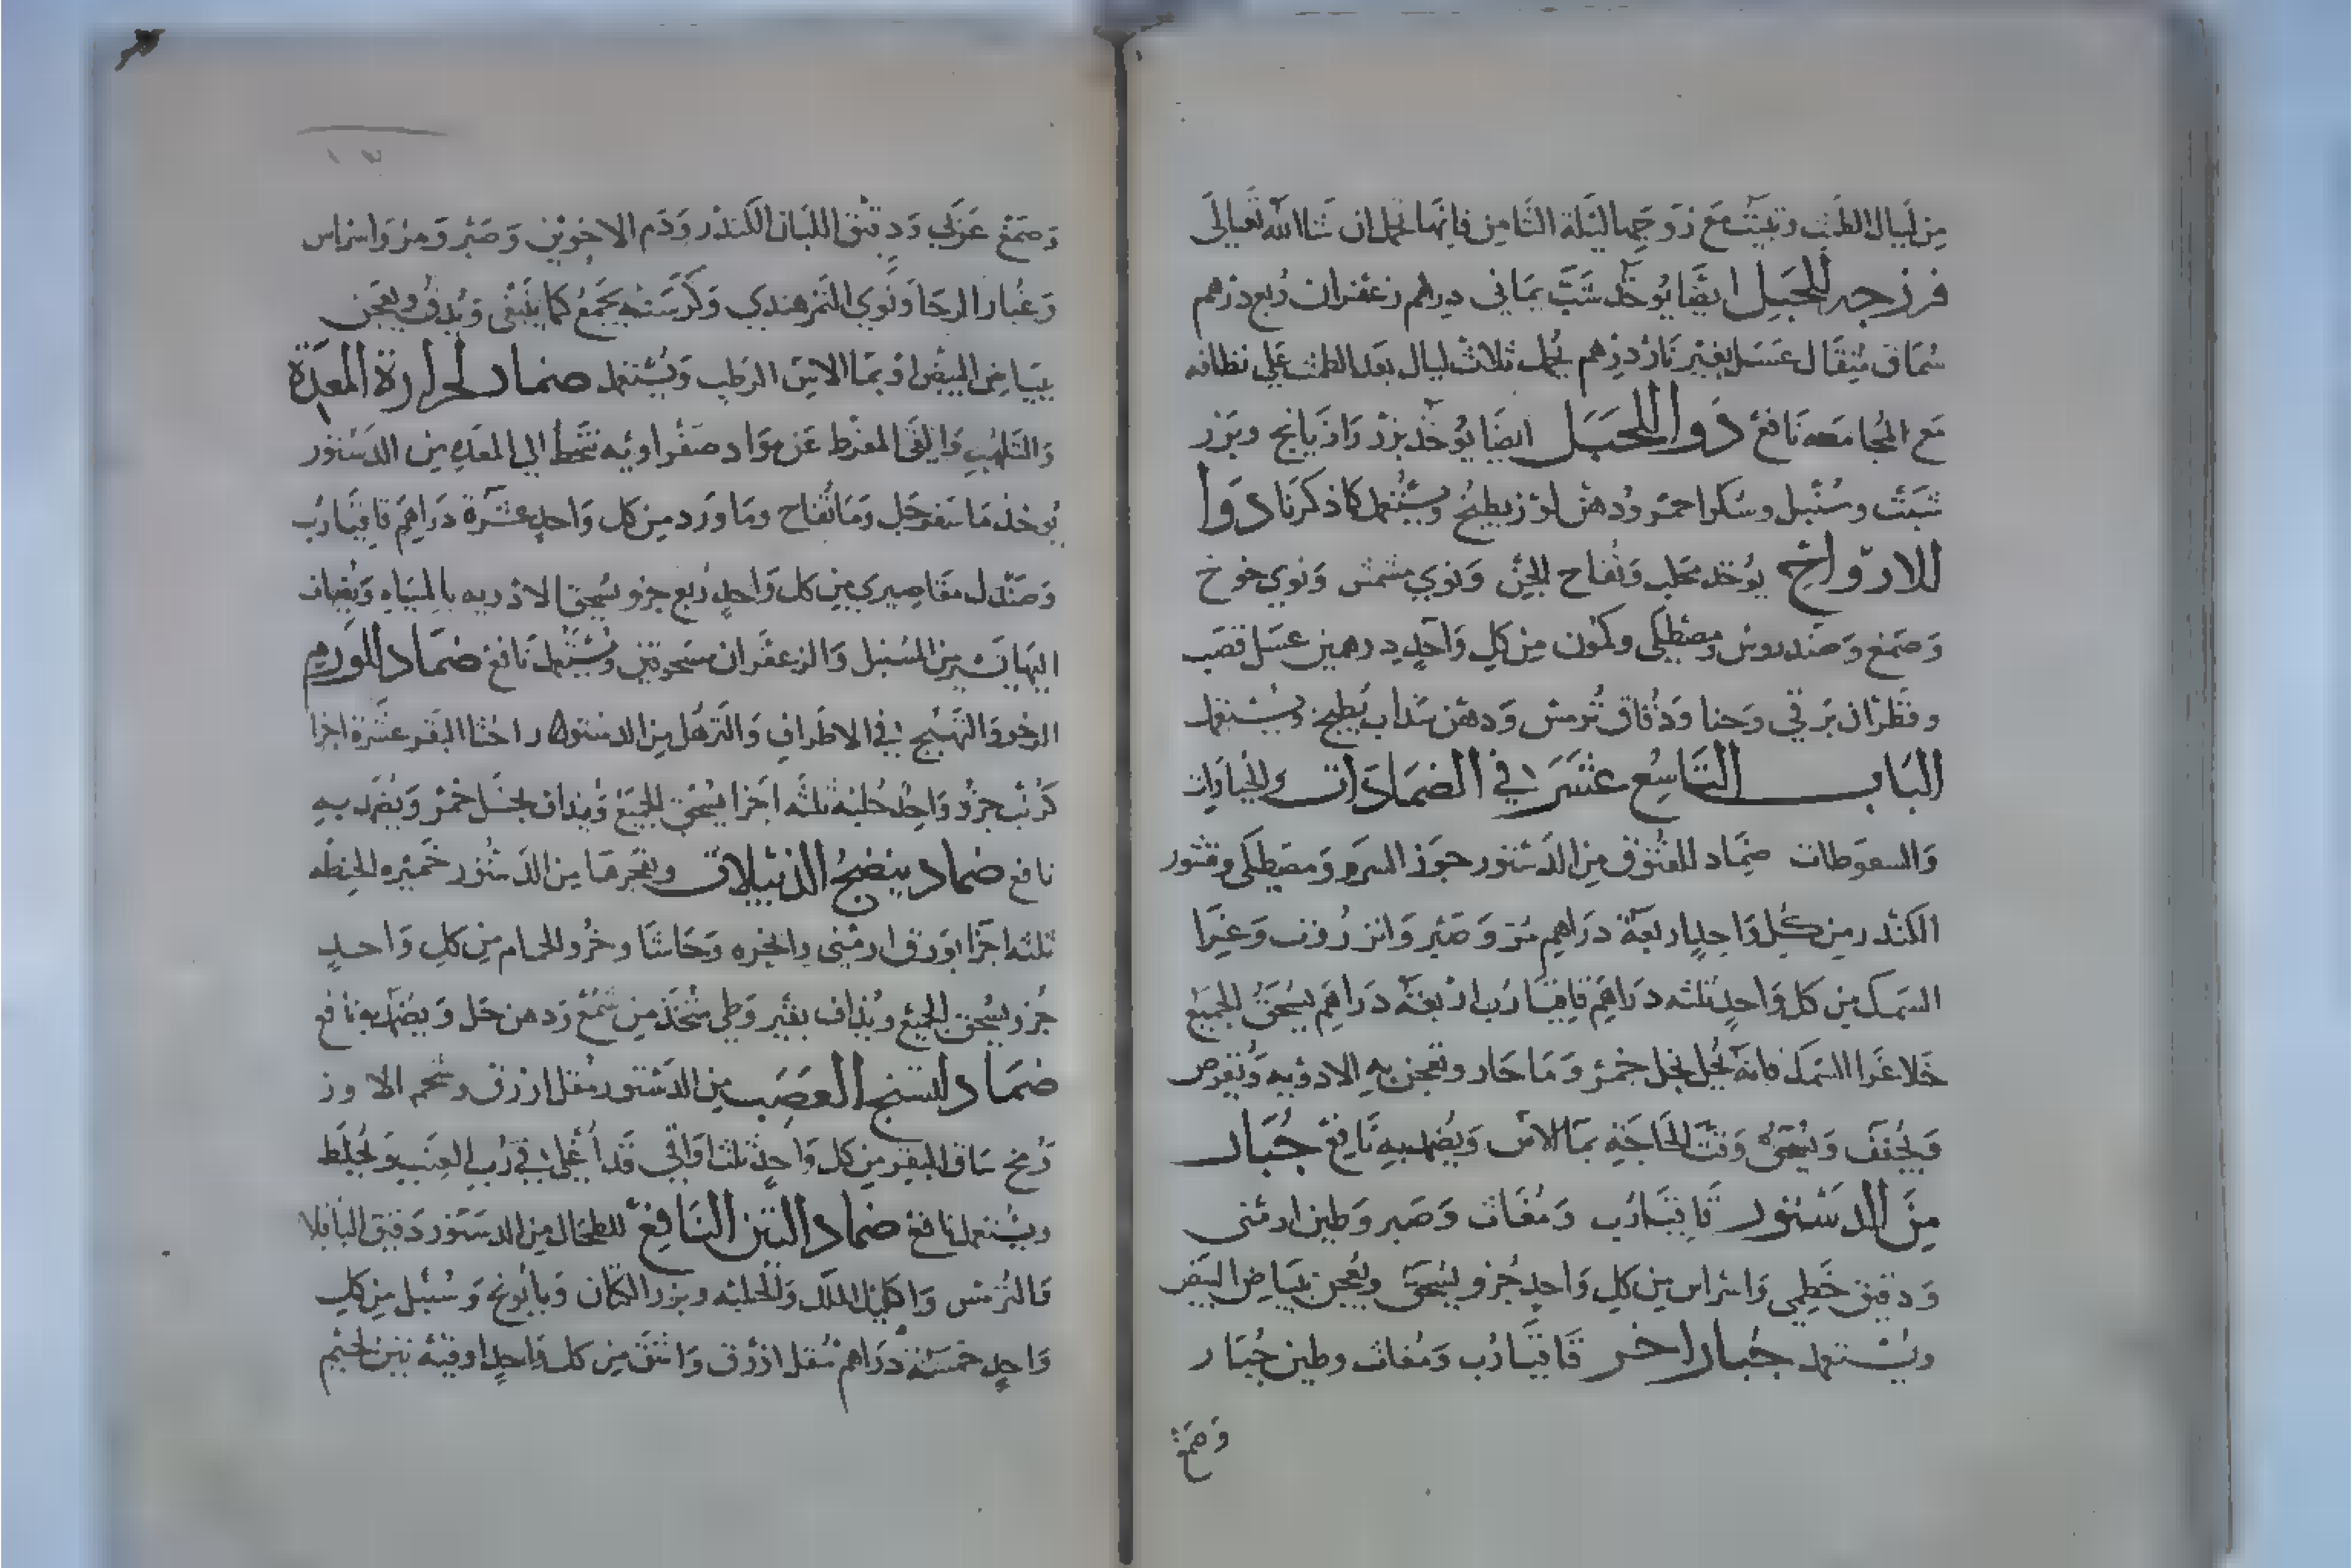 من ليال الطمث وتبيت مع زوجها ليلة الثامن فانها تحمل ان شا الله تعالى
فرزجه للحبل ايضا يوخذ شب يماني درهم زعفران ربع درهم
سماق مثقال عسل بغير نار درهم تحمل ثلاث ليال بعد الطمث علي نظافه
مع المجامعه نافع دوا للحبل ايضا يوخذ بزر رازيانج وبزر
شبث وسنبل وسكر احمر ودهن لوز يطبخ ويستعمل كما ذكرنا دوا
للارواح يوخذ محلب وتفاح الجن ونوي مشمش ونوي خوخ
وصمغ وصندروس ومصطكي وكمون من كل واحد درهمين عسل قصب
وقطران برقي وحنا ودقاق ترمس ودهن سداب يطبخ ويستعمل
الباب التاسع عشر في الضمادات والجبارات
والسعوطات ضماد للفتوق من الدستور جوز السرو ومصطكي وقشور
الكندر من كل واحد اربعة دراهم مر وصبر وانزروت وغرا
السمك من كل واحد ثلثه دراهم قاقيا رب اربعة دراهم يسحق الجميع
خلا غرا السمك فانه يحل بخل خمر وما حار وتعجن به الادويه وتقرص
ويجفف ويسحق وقت الحاجة بما الاس ويضمد به نافع جبار
من الدستور قاقيا رب ومغاث وصبر وطين ارمني
ودقيق خطمي واشراس من كل واحد جزو يسحق ويعجن ببياض البيض
ويستعمل جبار اخر قاقيا رب ومغاث وطين جبار
وصمغ
وصمغ عربي ودقيق اللبان الكندر ودم الاخوين وصبر ومر واشراس
وغبار الرحا ونوي التمر هندي وكرسنه يجمع كما ينبغي ويدق ويعجن
ببياض البيض او بما الاس الرطب ويستعمل ضماد لحرارة المعدة
والتلهب والقي المفرط عن مواد صفراويه تنحط الي المعده من الدستور
يوخذ ما سفرجل وما تفاح وما ورد من كل واحد عشرة دراهم قاقيا رب
وصندل مقاصيري من كل واحد ربع جزو يسحق الادويه بالمياه ويضاف
اليها من السنبل والزعفران مسحوقين ويستعمل نافع ضماد للورم
الرخو والتهبج في الاطراف والترهل من الدستور اخثا البقر عشرة اجزا
كرنب جزو واحد حلبه ثلثه اجزا يسحق الجميع ويذاف بخل خمر ويضمد به
نافع ضماد ينضج الدبيلات ويفجرها من الدستور خميره الحنطه
ثلثه اجزا بورق ارمني وانجره وحاشا وخرو الحمام من كل واحد
جزو يسحق الجميع ويذاف بقيروطي متخذ من شمع ودهن خل ويضمد به نافع
ضماد لتشنج العصب من الدستور مقل ازرق وشحم الاوز
ومخ ساق البقر من كل واحد ثلث اواقي قد اغلي في رب العنب ويخلط
ويستعمل نافع ضماد التين النافع للطحال من الدستور دقيق الباقلا
والترمس واكليل الملك والحلبه وبزر الكتان وبابونج وسنبل من كل
واحد خمسة دراهم مقل ازرق واشق من كل واحد اوقيه تين لحيم